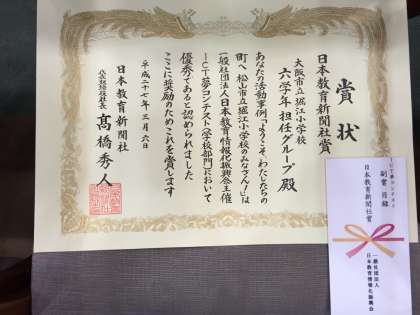 賞状
日本教育新聞社賞
大阪市立堀江小学校
六学年 担任グループ 殿
あなたの活動事例「ようこそ、わたしたちの
町へ 松山市立堀江小学校のみなさん!」は
一般社団法人日本教育情報化振興会主催
ICT夢コンテスト(学校部門)において
優秀であると認められました
ここに奨励のためこれを賞します
平成二十七年三月六日
日本教育新聞社
代表取締役社長 髙橋秀人
ICT夢コンテスト
副賞 目録
日本教育新聞社賞
一般社団法人
日本教育情報化振興会